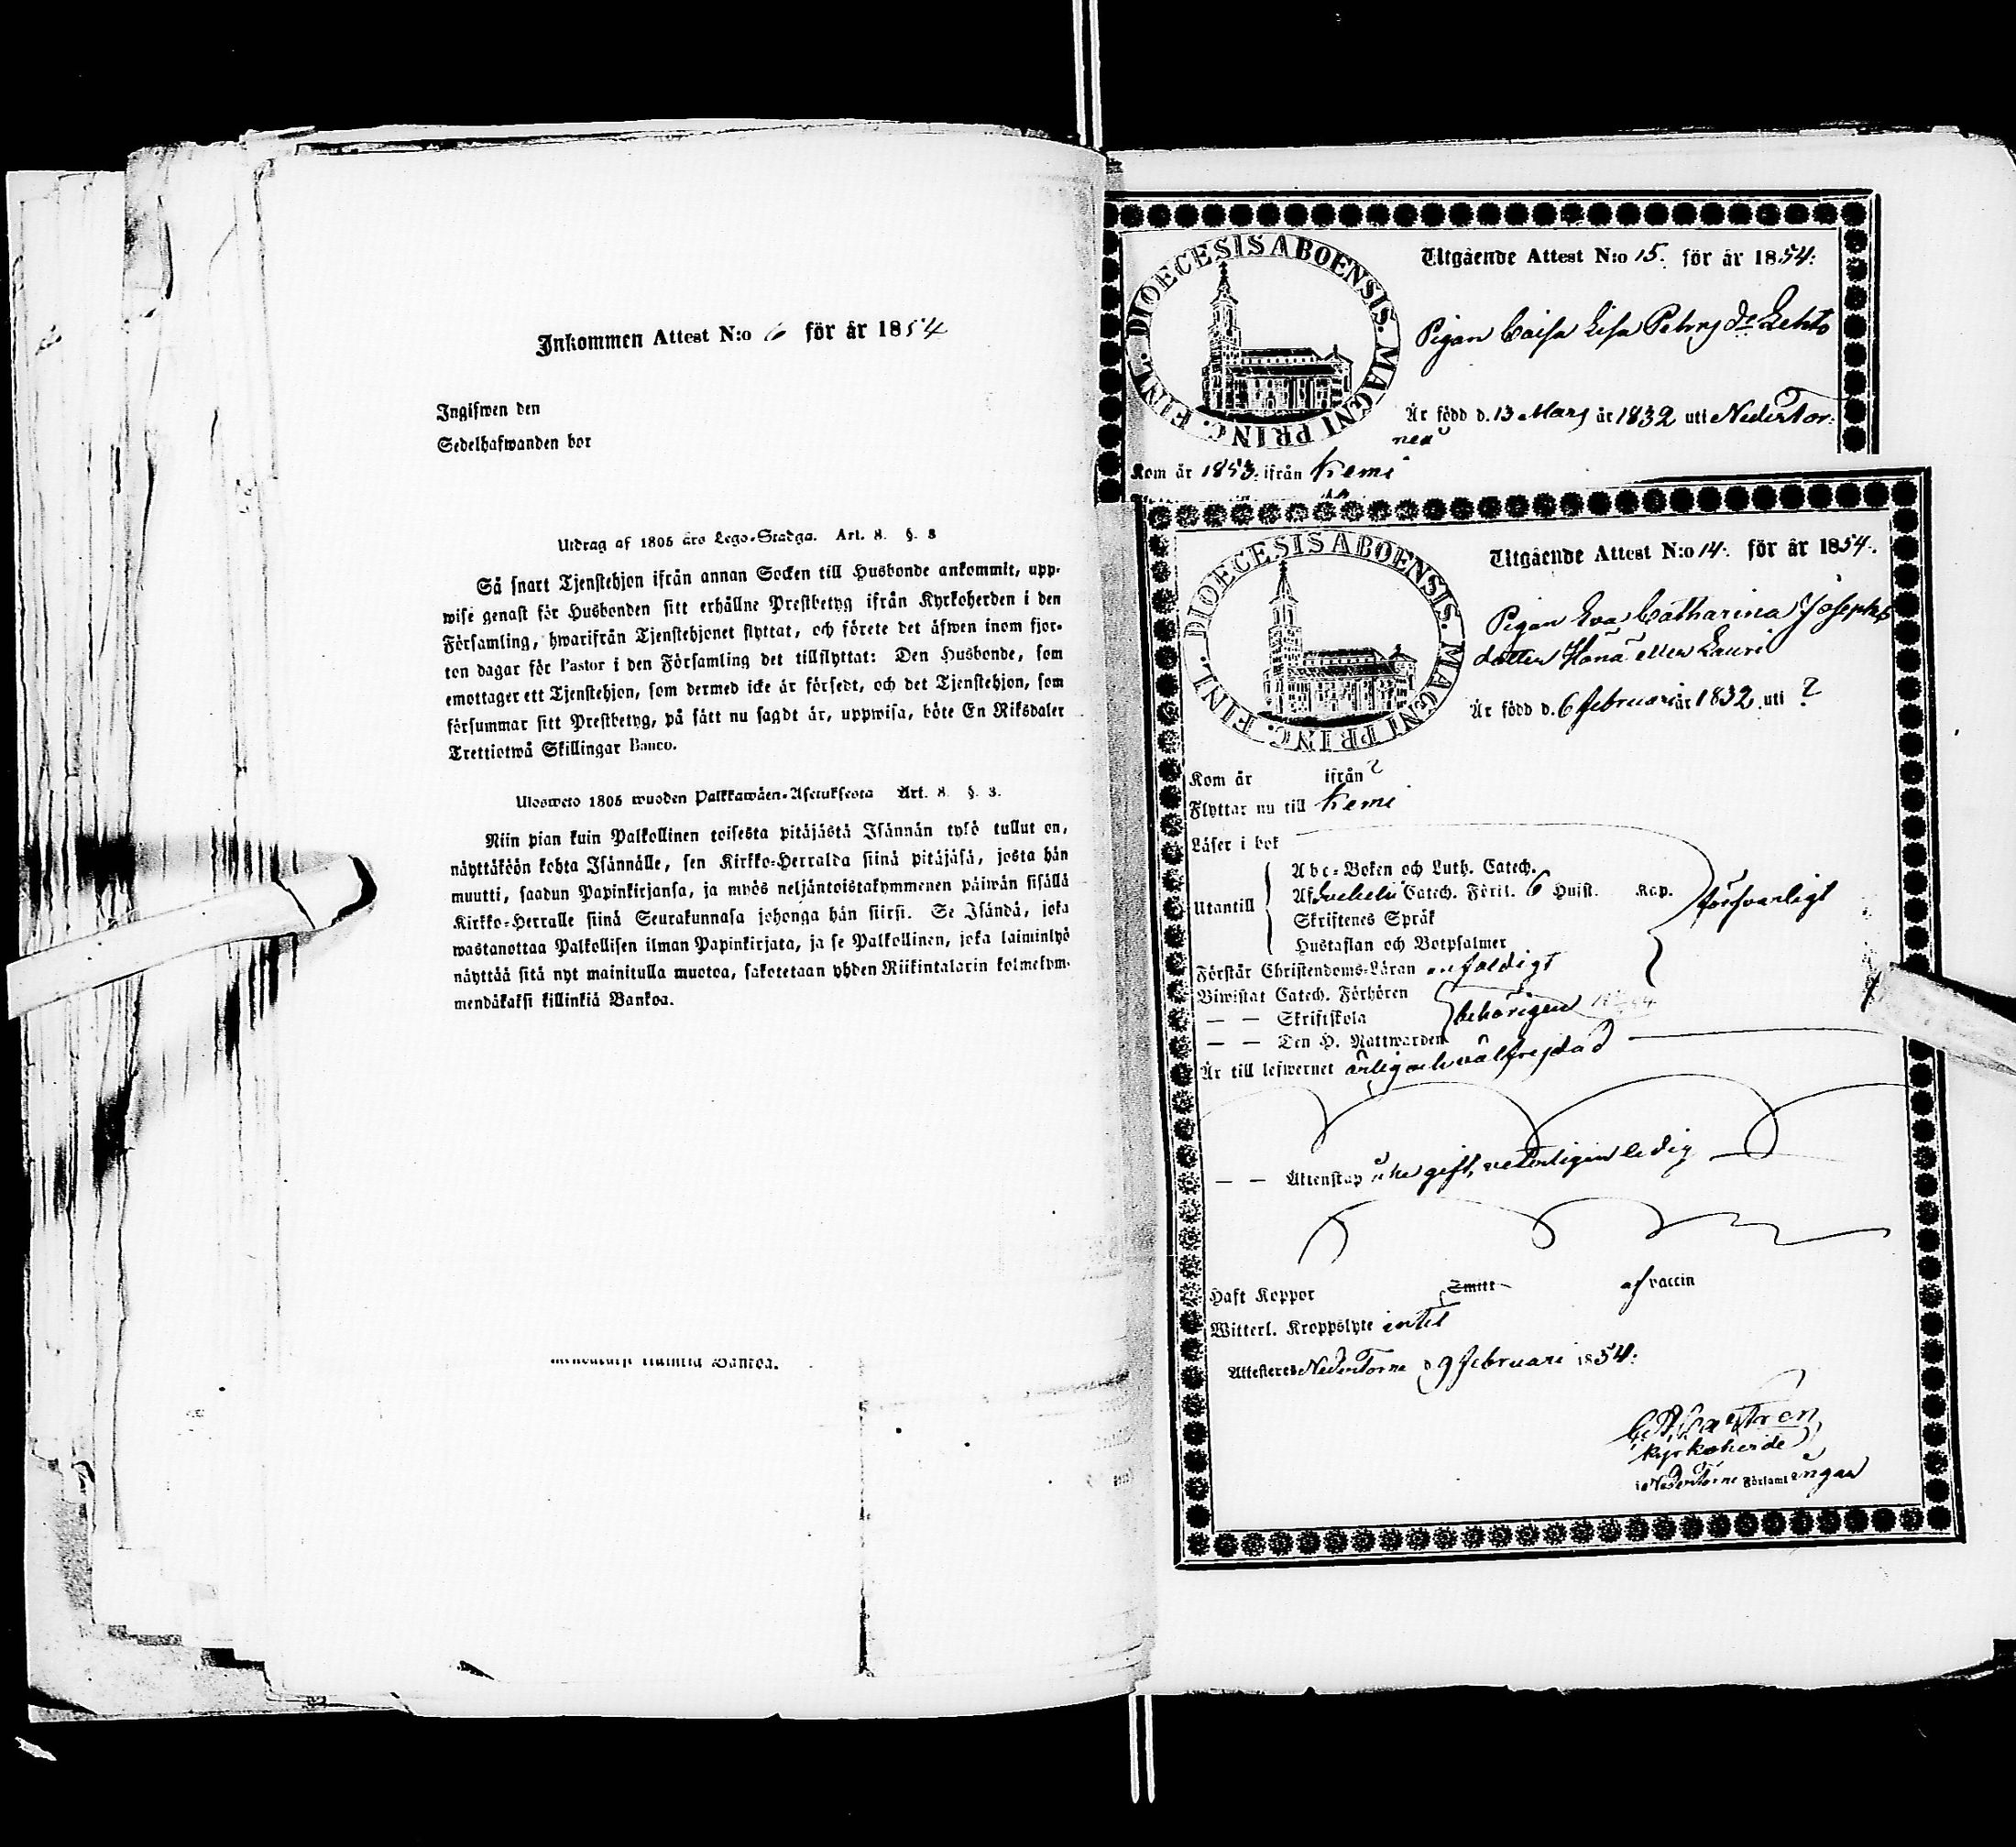 Inkommen Attest N:o 6 för år 1854
Ingifwen den
Sedelhafwanden bor
Utdrag af 1805 års Lego-Stadga. Art. 8. §. 8
Så snart Tjenstehjon ifrån annan Socken till Husbonde ankommit, upp-
wise genast för Husbonden sitt erhållne Prestbetyg ifrån Kyrkoherden i den
Församling, hwarifrån Tjenstehjonet flyttat, och förete det äfwen inom fjor-
ton dagar för Pastor i den Församling det tillflyttat: Den Husbonde, som
emottager ett Tjenstehjon, som dermed icke är försedt, och det Tjenstehjon, som
försummar sitt Prestbetyg, på sätt nu sagdt är, uppwisa, böte En Riksdaler
Trettiotwå Skillingar Banco.
Ulosweto 1805 wuoden Palkkawäen-Asetuksesta Art. 8. §. 3.
Niin pian kuin Palkollinen toisesta pitäjästä Isännän tykö tullut on,
näyttäköön kohta Isännälle, sen Kirkko-Herralda siinä pitäjäsä, josta hän
muutti, saadun Papinkirjansa, ja myös neljäntoistakymmenen päiwän sisällä
Kirkko-Herralle siinä Seurakunnasa johonga hän siirsi. Se Isändä, joka
wastanottaa Palkollisen ilman Papinkirjata, ja se Palkollinen, joka laiminlyö
näyttää sitä nyt mainitulla muotoa, sakotetaan yhden Riikintalarin kolmekym-
mendäkaksi killinkiä Bankoa.
mendäkaksi killinkiä Bankoa.
DIOECESIS ABOENSIS. MAGNI PRINC. FINL.
Utgående Attest N:o 15. för år 1854:
Pigan Caisa Lisa Petersdr Lehto
Är född d. 13 Mars år 1832 uti NederTor-
neå
Kom år 1853. ifrån Kemi
DIOECESIS ABOENSIS. MAGNI PRINC. FINL.
Utgående Attest N:o 14. för år 1854.
Pigan Eva Catharina Josephs
dotter eller Lauri
Är född d. 6 februari år 1832 uti ?
Kom år ifrån ?
Flyttar nu till Kemi
Läser i bok
Utantill
Abc-Boken och Luth. Catech.
Af Svebelii Catech. Förkl. 6 Hufst. Kap.
försvarligt
Skriftenes Språk
Hustaflan och Botpsalmer
Förstår Christendoms-Läran enfaldigt
Biwistat Catech. Förhören
— — Skriftskola behörigen
— — Den H. Nattwarden
Är till lefwernet ärlig och välfrejdad
— — Äktenskap icke gift, veterligen ledig
Haft Koppor Smitt af vaccin
Witterl. Kroppslyte intet
Attesteres NederTorne d 9 februari 1854:
Castren
Kyrkoherde
i NederTorne Församlingar